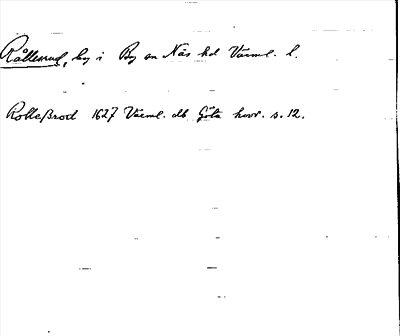 Rållerud, by i By sn Näs hd Värml. l.
Rolleßrod 1627 Värml. db Göta hovr. s. 12.